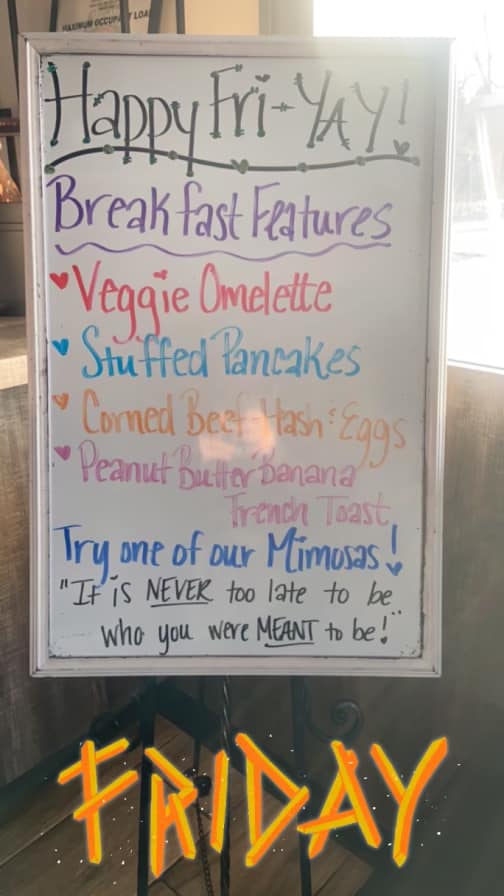 MAXIMUM OCCUPANT LOAD
Happy Fri-YAY!
Breakfast Features
Veggie Omelette
Stuffed Pancakes
Corned Beef Hash & Eggs
Peanut Butter Banana
French Toast
Try one of our Mimosas!
"It is NEVER too late to be
who you were MEANT to be!"
FRIDAY